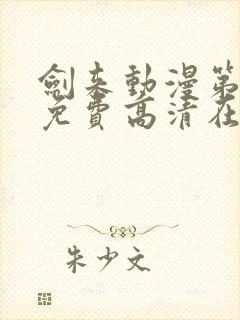 劍來動漫第
免費高清在
朱少文